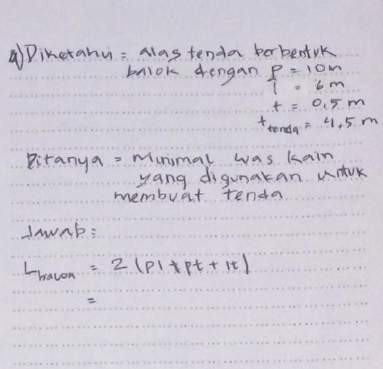 a) Diketahui = alas tenda berbentuk
balok dengan p = 10 m
l = 6 m
t = 0,5 m
t tenda = 4,5 m
Ditanya = Minimal luas kain
yang digunakan untuk
membuat tenda
Jawab:
L balok = 2 (pl + pt + lt)
=